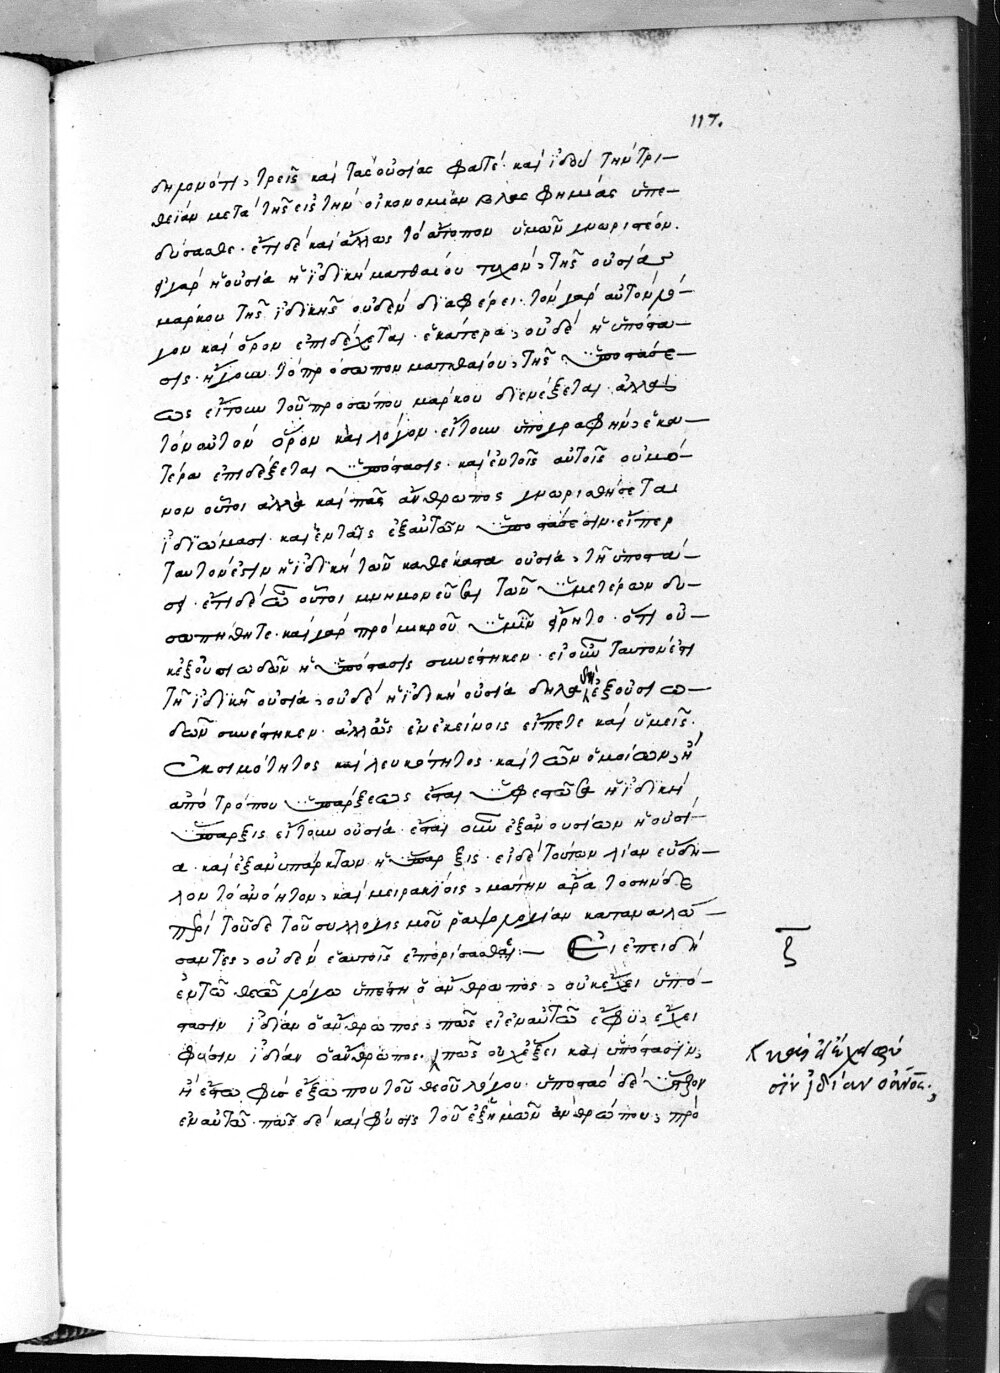 117.
δηλονότι, τρεῖς καὶ τὰς οὐσίας φατέ· καὶ ἰδοὺ τὴν τρι-
θεΐαν μετὰ τῆς εἰς τὴν οἰκονομίαν βλασφημίας ὑπε-
δύσασθε· ἔτι δὲ καὶ ἄλλως τὸ ἄτοπον ὑμῶν γνωριστέον.
εἰ γὰρ ἡ οὐσία ἡ ἰδικὴ ματθαίου τυχὸν, τῆς οὐσίας
μάρκου τῆς ἰδικῆς οὐδὲν διαφέρει· τὸν γὰρ αὐτὸν λό-
γον καὶ ὅρον ἐπιδέχεται ἑκατέρα, οὐδὲ ἡ ὑπόστα-
σις ἤγουν τὸ πρόσωπον ματθαίου, τῆς ὑποστάσε-
ως εἴτουν τοῦ προσώπου μάρκου διενέξεται ἀλλὰ
τὸν αὐτὸν ὅρον καὶ λόγον εἴτουν ὑπογραφὴν, ἑκα-
τέρα ἐπιδέξεται ὑπόστασις· καὶ ἐν τοῖς αὐτοῖς οὐ μό-
νον οὗτοι ἀλλὰ καὶ πᾶς ἄνθρωπος γνωρισθήσεται
ἰδιώμασι· καὶ ἓν ταῖς ἐξ αὐτῶν ὑποστάσεσιν· εἴπερ
ταυτόν ἐστιν ἡ ἰδικὴ τῶν καθέκαστα οὐσία, τῇ ὑποστά-
σει· ἔτι δὲ ὦ οὗτοι μνημονεῦσαι τῶν ὑμετέρων δυ-
σωπήθητε· καὶ γὰρ πρὸ μικροῦ ὑμῖν εἴρητο· ὅτι οὐ-
κ ἐξ οὐσιωδῶν ἡ ὑπόστασις συνέστηκεν· εἰ οὖν ταυτόν ἐστι
τῇ ἰδικῇ οὐσίᾳ, οὐδὲ ἡ ἰδικὴ οὐσία δηλαδὴ ἐξ οὐσιω-
δῶν συνέστηκεν· ἀλλ' ὡς ἐν ἐκείνοις εἴπετε καὶ ὑμεῖς·
ἐκ σιμότητος καὶ λευκότητος· καὶ τῶν ὁμοίων, ἢ
ἀπὸ τρόπου ὑπάρξεως ἔσται ὑφεστῶσα ἡ ἰδικὴ
ὕπαρξις εἴτουν οὐσία· ἔσται οὖν ἐξ ἀνουσίων ἡ οὐσί-
α· καὶ ἐξ ἀνυπάρκτων ἡ ὕπαρξις· εἰ δὲ τούτων λίαν εὔδη-
λον τὸ ἀνόητον, καὶ μειρακιῶδες, μάτην ἄρα τοσήνδε
περὶ τοῦδε τοῦ συλλογισμοῦ ῥαψῳδίαν καταναλώ-
σαντες, οὐδὲν ἑαυτοῖς ἐπορίσασθε:— Εἰ ἐπειδὴ
ζ
ἐν τῷ θεῷ λόγῳ ὑπέστη ὁ ἄνθρωπος, οὐκ ἔχει ὑπό-
στασιν ἰδίαν ὁ ἄνθρωπος, πῶς εἰ ἐν αὐτῷ ἔφυ, ἔχει
φύσιν ἰδίαν ὁ ἄνθρωπος· πῶς οὐχ ἕξει καὶ ὑπόστασιν,
ἢ ἔστω φύσις ἔξω που τοῦ θεοῦ λόγου· ὑποστὰς δὲ ὕστερον
ἐν αὐτῷ· πῶς δὲ καὶ φύσις τοῦ ἐξ ἡμῶν ἀνθρώπου, πρὸ